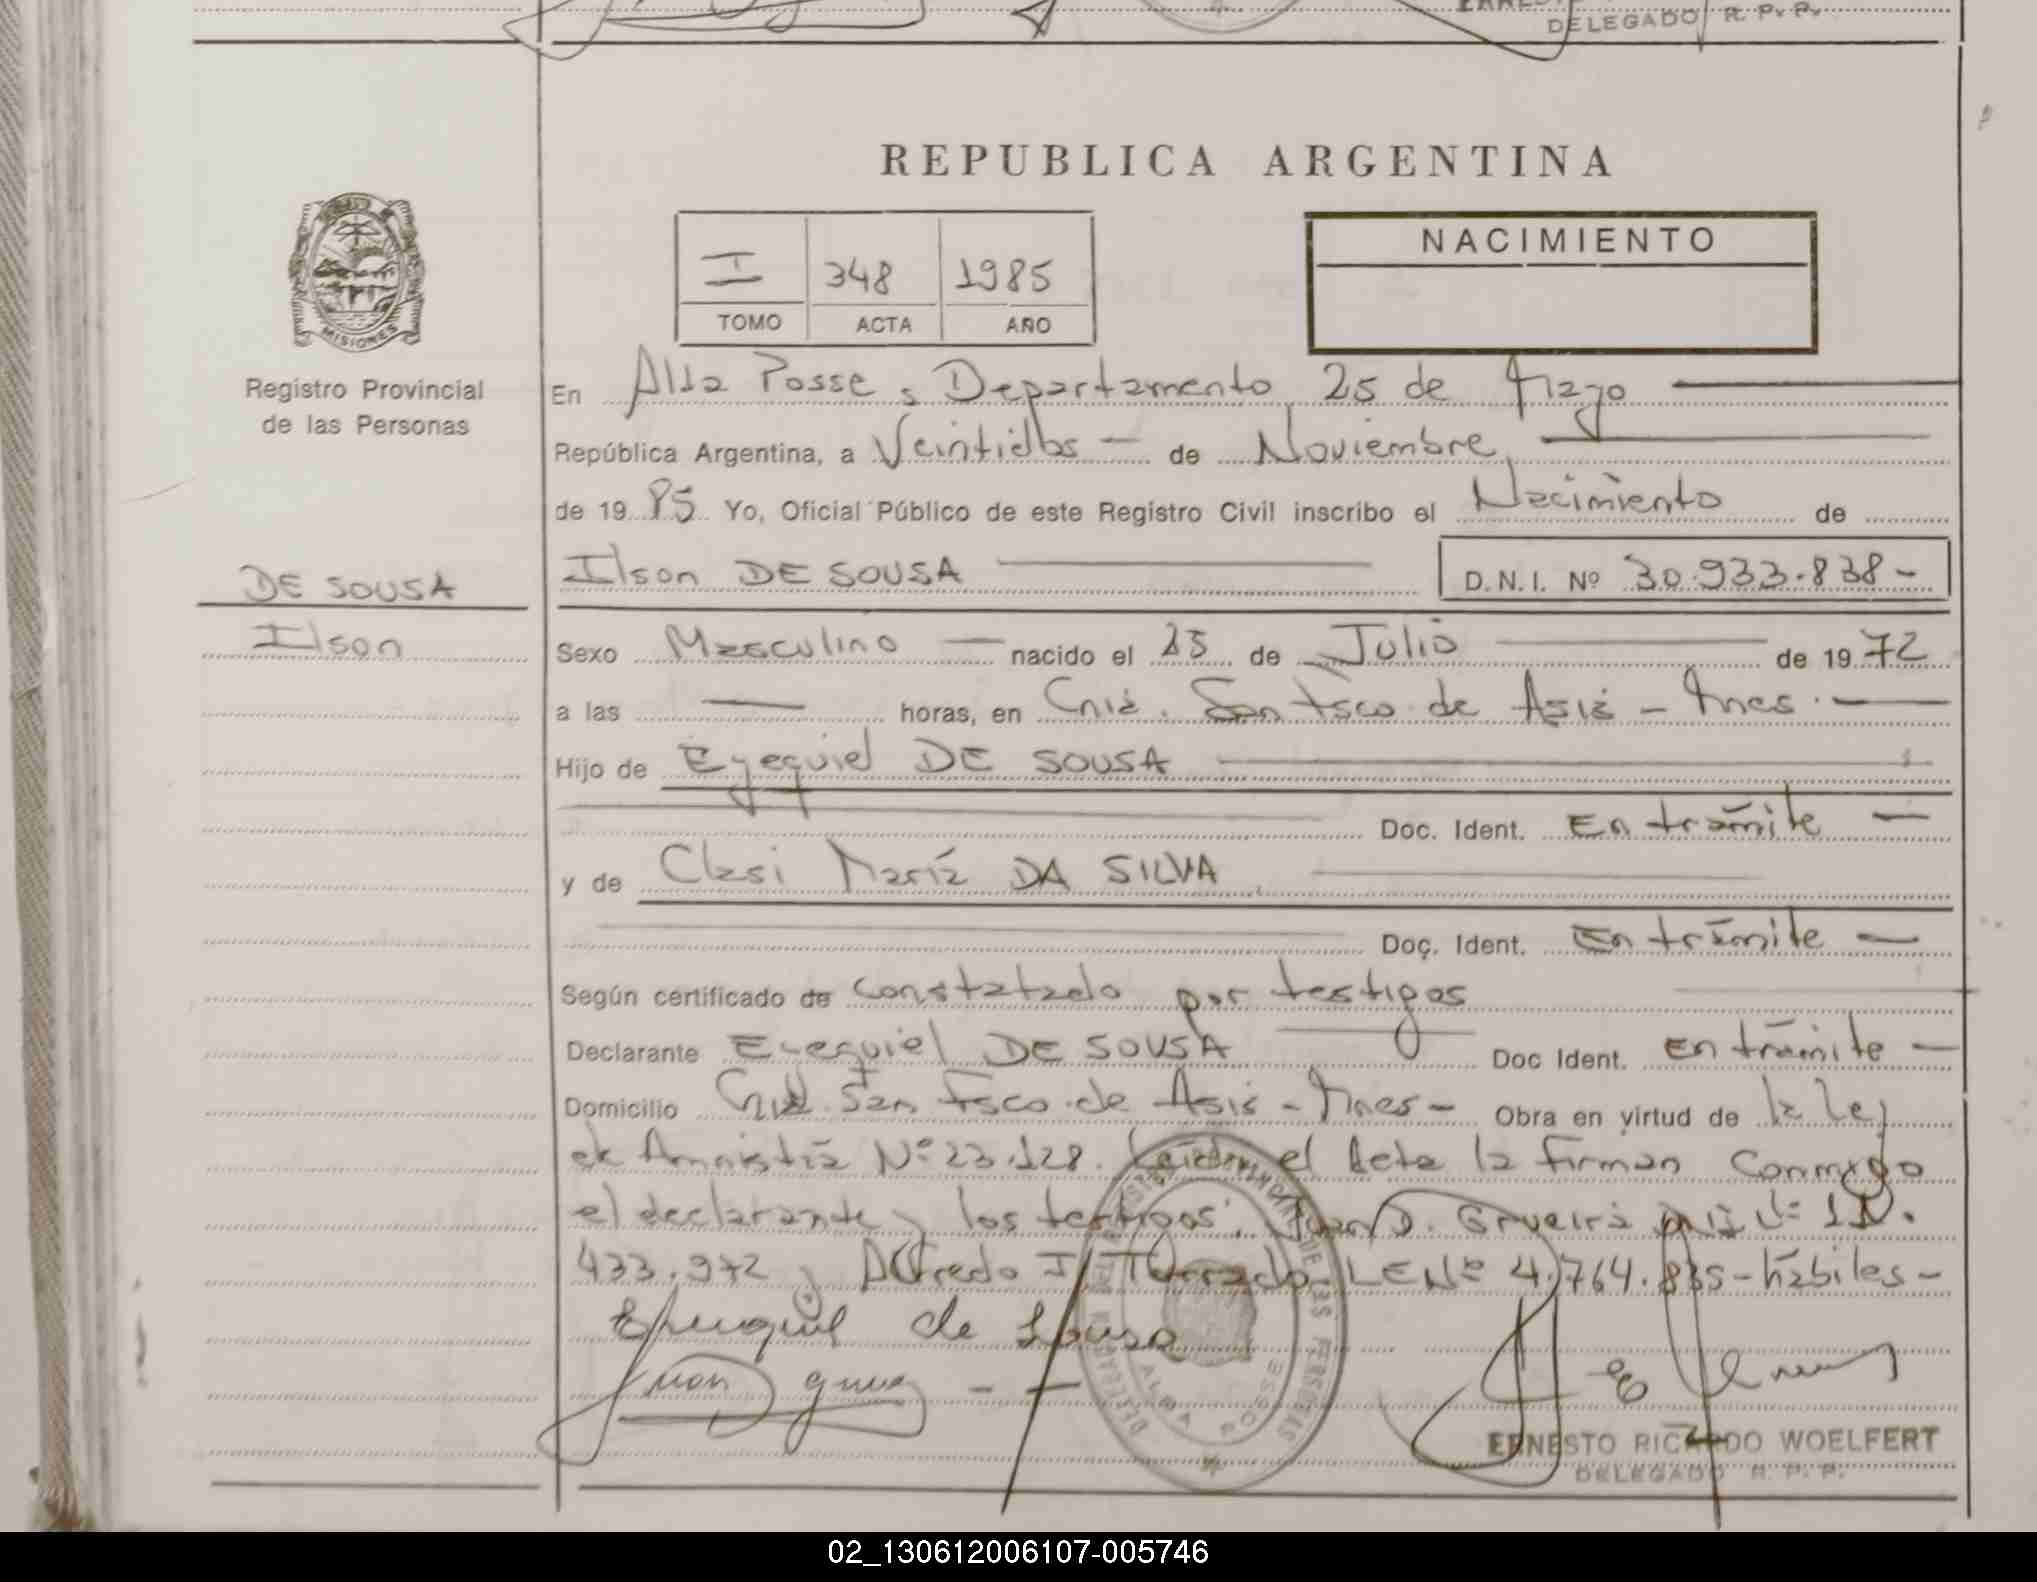 DELEGADO R. P. P.
REPUBLICA ARGENTINA
NACIMIENTO
I 348 1985
TOMO ACTA AÑO
MISIONES
Registro Provincial
de las Personas
En Alba Posse, Departamento 25 de Mayo
República Argentina, a Veintidos de Noviembre
de 1985 Yo, Oficial Público de este Registro Civil inscribo el Nacimiento de
DE SOUSA
Ilson
Ilson DE SOUSA D.N.I. Nº 30.933.838-
Sexo Masculino nacido el 25 de Julio de 1972
a las horas, en Cnia. San Fsco de Asis - Mnes.
Hijo de Ezequiel DE SOUSA
Doc. Ident. En trámite
y de Clasi María DA SILVA
Doc. Ident. En trámite
Según certificado de constatado por testigos
Declarante Ezequiel DE SOUSA Doc Ident. En trámite
Domicilio Cnia. San Fsco. de Asis - Mnes - Obra en virtud de la Ley
de Amnistía Nº 23.128. Leída el Acta la firman conmigo
el declarante y los testigos: Juan D. Grueira Nº 11.
433.972 y Alfredo I. Terrado LE Nº 4.764.835 - hábiles -
Ezequiel de Sousa
Juan
ALBA POSSE
ERNESTO RICARDO WOELFERT
DELEGADO R. P. P.
02_130612006107-005746